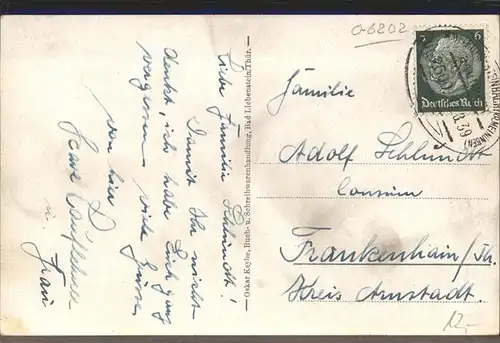 O-6202
6
Deutsches Reich
39
Liebe Familie Schlundt!
Damit Ihr nicht
denkt, ich habe
vergessen viele Grüsse
von hier
u. Frau
Oskar Keyhe, Buch- u. Schreibwarenhandlung, Bad Liebenstein/Thür.
Familie
Adolf Schlundt
Consum
Frankenhain/Th.
Kreis Arnstadt.
12,-